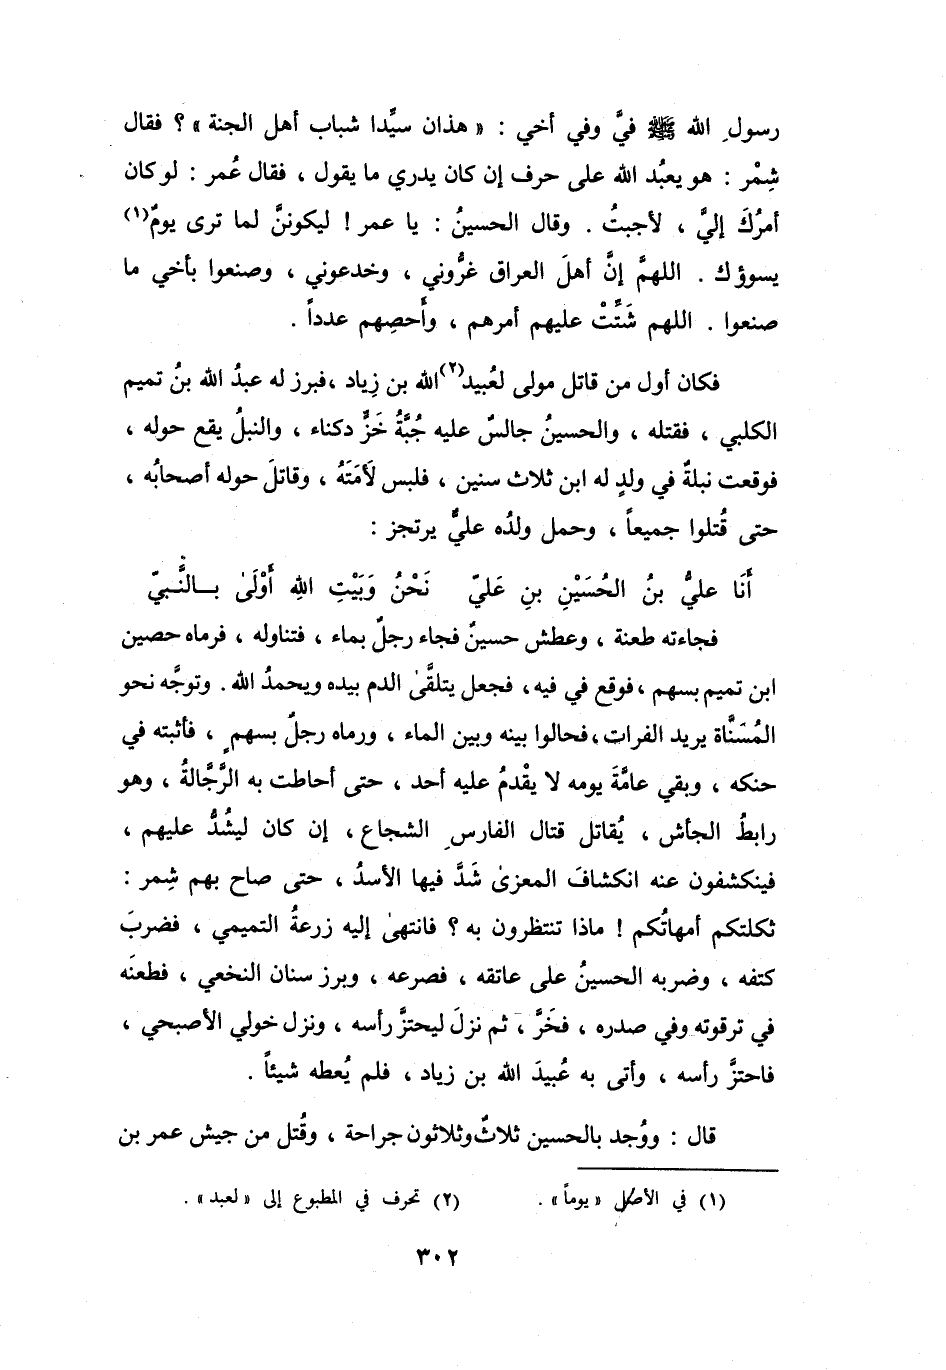 رسولِ الله ﷺ فيَّ وفي أخي : « هذان سيِّدا شباب أهل الجنة » ؟ فقال
شِمْر : هو يعبُد الله على حرف إن كان يدري ما يقول ، فقال عُمر : لو كان
أمرُكَ إليَّ ، لأجبتُ . وقال الحسينُ : يا عمر ! ليكوننَّ لما ترى يومٌ(١)
يسوؤك . اللهمَّ إنَّ أهلَ العراق غرُّوني ، وخدعوني ، وصنعوا بأخي ما
صنعوا . اللهم شَتِّتْ عليهم أمرهم ، وأَحصِهم عدداً .
فكان أول من قاتل مولى لعُبيد(٢) الله بن زِياد ، فبرز له عبدُ الله بنُ تميم
الكلبي ، فقتله ، والحسينُ جالسٌ عليه جُبَّةُ خَزٍّ دكناء ، والنبلُ يقع حوله ،
فوقعت نبلةٌ في ولدٍ له ابن ثلاث سنين ، فلبس لَأمَتَهُ ، وقاتلَ حوله أصحابُه ،
حتى قُتلوا جميعاً ، وحمل ولدُه عليٌّ يرتجز :
أَنَا عليُّ بنُ الحُسَيْنِ بنِ عَليّ نَحْنُ وَبَيْتِ اللهِ أَوْلَىٰ بـالنَّبيّ
فجاءته طعنة ، وعطش حسينٌ فجاء رجلٌ بماء ، فتناوله ، فرماه حصين
ابن تميم بسهم ، فوقع في فيه ، فجعل يتلقَّىٰ الدم بيده ويحمدُ الله . وتوجَّه نحو
المُسَنَّاة يريد الفرات ، فحالوا بينه وبين الماء ، ورماه رجلٌ بسهمٍ ، فأثبته في
حنكه ، وبقي عامَّةَ يومه لا يقْدمُ عليه أحد ، حتى أحاطت به الرَّجَّالةُ ، وهو
رابطُ الجأش ، يُقاتل قتال الفارسِ الشجاع ، إن كان ليشُدُّ عليهم ،
فينكشفون عنه انكشافَ المعزىٰ شَدَّ فيها الأسدُ ، حتى صاح بهم شِمر :
ثكلتكم أمهاتُكم ! ماذا تنتظرون به ؟ فانتهىٰ إليه زرعةُ التميمي ، فضربَ
كتفه ، وضربه الحسينُ على عاتقه ، فصرعه ، وبرز سنان النخعي ، فطعنَه
في ترقوته وفي صدره ، فخَرَّ ، ثم نزلَ ليحتزَّ رأسه ، ونزل خولي الأصبحي ،
فاحتزَّ رأسه ، وأتى به عُبيدَ الله بن زياد ، فلم يُعطه شيئاً .
قال : ووُجد بالحسين ثلاثٌ وثلاثون جراحة ، وقُتل من جيش عمر بن
(١) في الأصل « يوماً » .
(٢) تحرف في المطبوع إلى « لعبد » .
٣٠٢